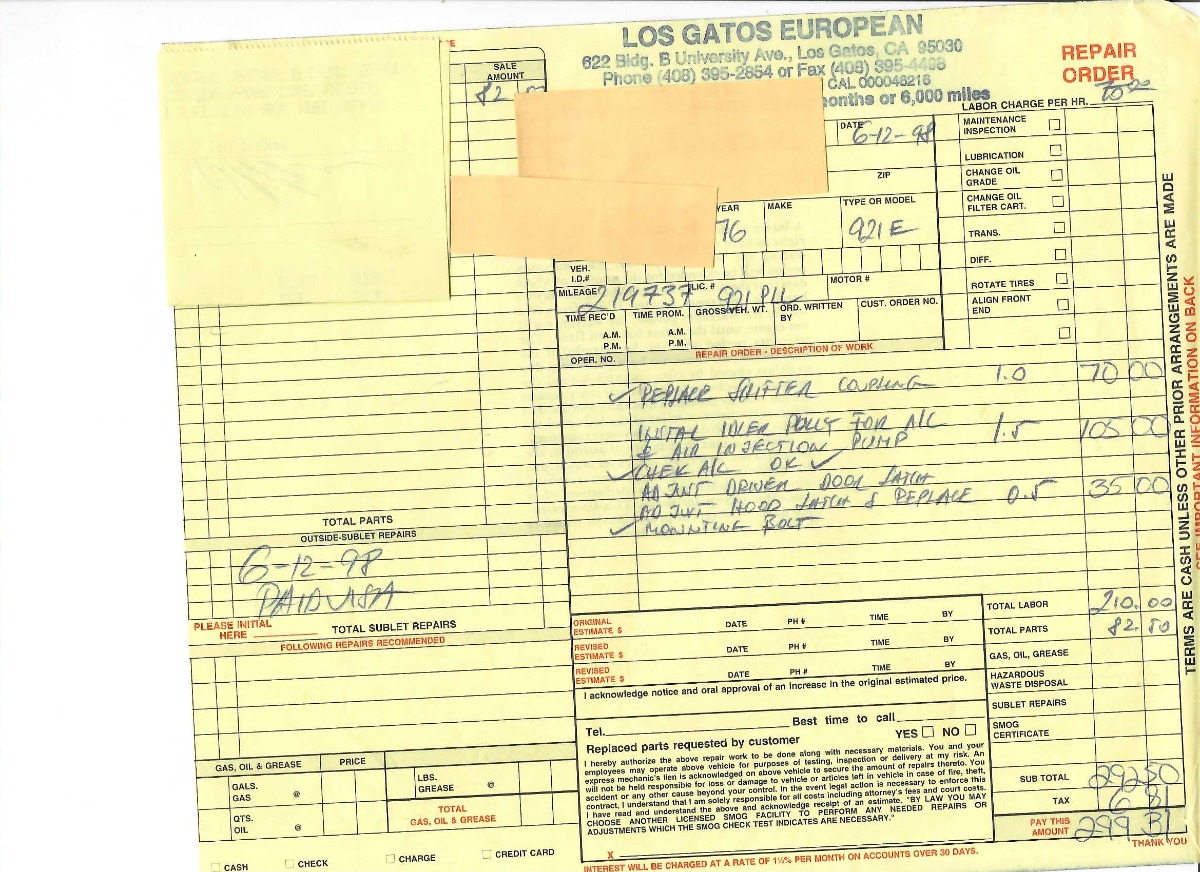 LOS GATOS EUROPEAN
622 Bldg. B University Ave., Los Gatos, CA 95030
Phone (408) 395-2854 or Fax (408) 395-4498
CAL 000046216
onths or 6,000 miles
REPAIR
ORDER
SALE
AMOUNT
82
LABOR CHARGE PER HR.
DATE 6-12-98
ZIP
YEAR MAKE TYPE OR MODEL
76 921E
VEH.
I.D.#
MILEAGE 219737 LIC. # 921 PIL MOTOR #
TIME REC'D TIME PROM. GROSS VEH. WT. ORD. WRITTEN BY CUST. ORDER NO.
A.M. A.M.
P.M. P.M.
MAINTENANCE
INSPECTION
LUBRICATION
CHANGE OIL
GRADE
CHANGE OIL
FILTER CART.
TRANS.
DIFF.
ROTATE TIRES
ALIGN FRONT
END
OPER. NO. REPAIR ORDER - DESCRIPTION OF WORK
REPLACE SHIFTER COUPLING 1.0 70 00
INSTAL IDLER PULLY FOR A/C 1.5 105 00
& AIR INJECTION PUMP
CHEK A/C OK
ADJUST DRIVER DOOR LATCH
ADJUST HOOD LATCH & REPLACE 0.5 35 00
MOUNTING BOLT
TOTAL PARTS
OUTSIDE-SUBLET REPAIRS
6-12-98
PAID VISA
PLEASE INITIAL
HERE TOTAL SUBLET REPAIRS
FOLLOWING REPAIRS RECOMMENDED
GAS, OIL & GREASE PRICE
GALS.
GAS @
QTS.
OIL @
LBS.
GREASE @
TOTAL
GAS, OIL & GREASE
CASH CHECK CHARGE CREDIT CARD
ORIGINAL
ESTIMATE $ DATE PH # TIME BY
REVISED
ESTIMATE $ DATE PH # TIME BY
REVISED
ESTIMATE $ DATE PH # TIME BY
I acknowledge notice and oral approval of an increase in the original estimated price.
Tel. Best time to call
YES NO
Replaced parts requested by customer
I hereby authorize the above repair work to be done along with necessary materials. You and your
employees may operate above vehicle for purposes of testing, inspection or delivery at my risk. An
express mechanic's lien is acknowledged on above vehicle to secure the amount of repairs thereto. You
will not be held responsible for loss or damage to vehicle or articles left in vehicle in case of fire, theft,
accident or any other cause beyond your control. In the event legal action is necessary to enforce this
contract, I understand that I am solely responsible for all costs including attorney's fees and court costs.
I have read and understand the above and acknowledge receipt of an estimate. "BY LAW YOU MAY
CHOOSE ANOTHER LICENSED SMOG FACILITY TO PERFORM ANY NEEDED REPAIRS OR
ADJUSTMENTS WHICH THE SMOG CHECK TEST INDICATES ARE NECESSARY."
X
INTEREST WILL BE CHARGED AT A RATE OF 1½% PER MONTH ON ACCOUNTS OVER 30 DAYS.
TOTAL LABOR 210.00
TOTAL PARTS 82.50
GAS, OIL, GREASE
HAZARDOUS
WASTE DISPOSAL
SUBLET REPAIRS
SMOG
CERTIFICATE
SUB TOTAL 292 50
TAX 6 81
PAY THIS
AMOUNT 299 31
THANK YOU
TERMS ARE CASH UNLESS OTHER PRIOR ARRANGEMENTS ARE MADE
SEE IMPORTANT INFORMATION ON BACK